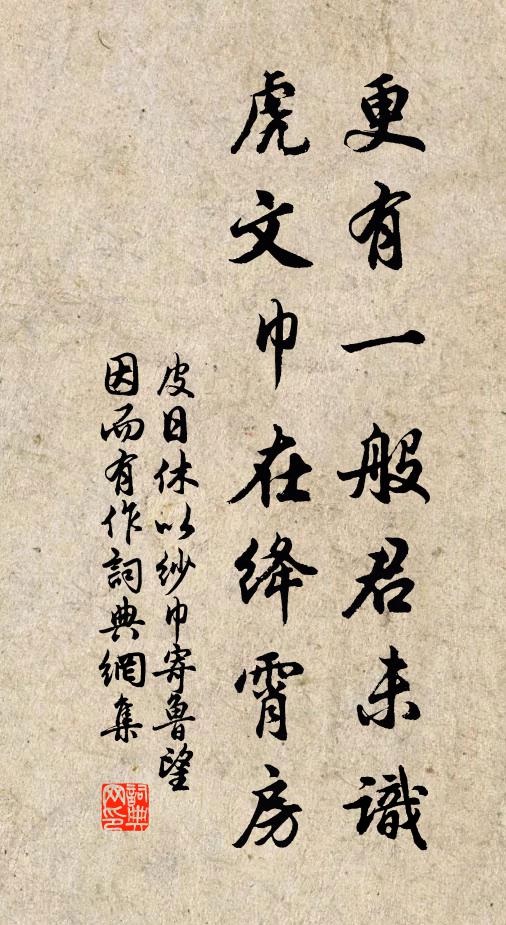 更有一般君未識
虎文巾在绛霄房
皮日休以紗巾寄魯望
因而有作詞典網集
詞典
网印